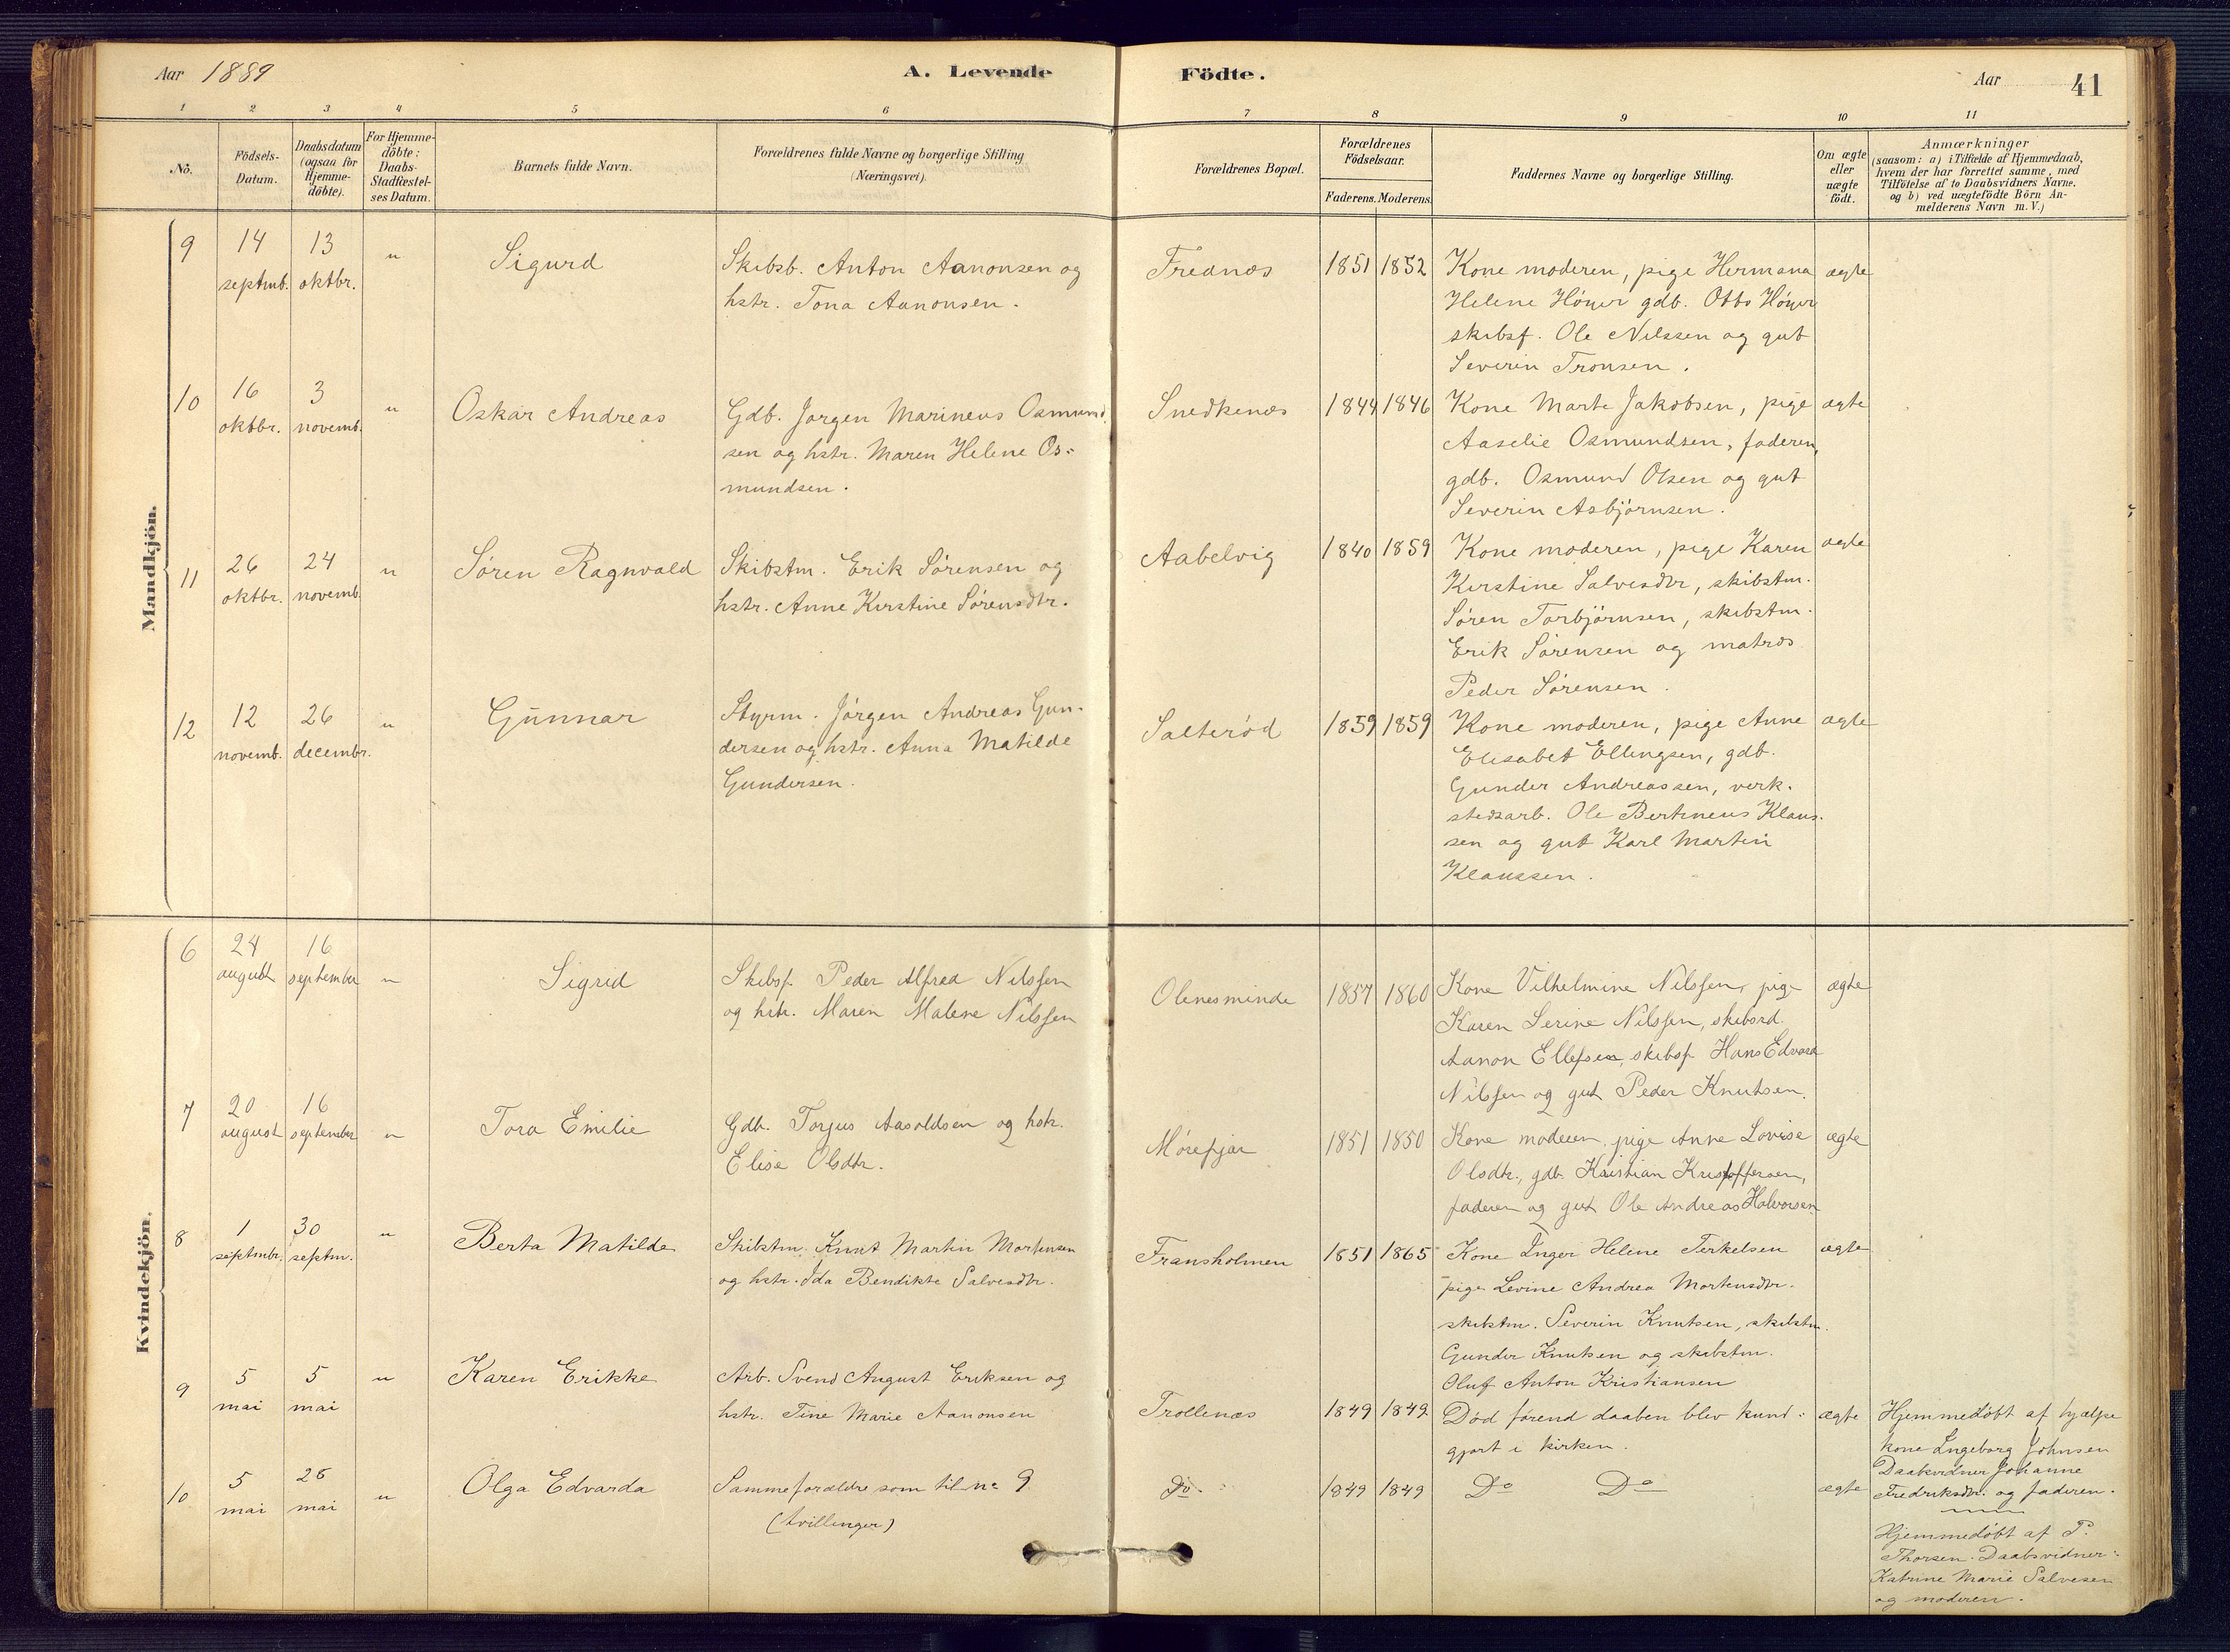 Aar 1889
A. Levende Födte.
Aar
41
1 2 3 4 5 6 7 8 9 10 11
No.
Födsels-
Datum.
Daabsdatum
(ogsaa for
Hjemme-
döbte).
For Hjemme-
döbte:
Daabs-
Stadfæstel-
ses Datum.
Barnets fulde Navn.
Forældrenes fulde Navne og borgerlige Stilling
(Næringsvei).
Forældrenes Bopæl.
Forældrenes
Födselsaar.
Faderens. Moderens.
Faddernes Navne og borgerlige Stilling.
Om ægte
eller
uægte
födt.
Anmærkninger
(saasom: a) i Tilfælde af Hjemmedaab,
hvem der har forrettet samme, med
Tilföielse af to Daabsvidners Navne.
og b) ved uægtefödte Börn An-
melderens Navn m. V.)
Mandkjön.
9
14
septmb.
13
oktbr.
"
Sigurd
Skibsb. Anton Aanonsen og
hstr. Tona Aanonsen.
Frednæs
1851 1852
Kone moderen, pige Hermana
Helene Höyer gdb. Otto Höyer
skibsf. Ole Nilssen og gut
Severin Tronsen.
ægte
10
16
oktbr.
3
novemb.
"
Oskar Andreas
Gdb. Jørgen Marineus Osmund
sen og hstr. Maren Helene Os-
mundsen.
Snedkenæs
1844 1846
Kone Marte Jakobsen, pige
Aaselie Osmundsen, faderen,
gdb. Osmund Olsen og gut
Severin Asbjörnsen.
ægte
11
26
oktbr.
24
novemb.
"
Søren Ragnvald
Skibstm. Erik Sørensen og
hstr. Anne Kirstine Sørensdtr.
Aabelvig
1840 1859
Kone moderen, pige Karen
Kirstine Salvesdtr, skibstm.
Søren Torbjørnsen, skibstm.
Erik Sørensen og matros
Peder Sørensen.
ægte
12
12
novemb.
26
decembr.
"
Gunnar
Styrm. Jørgen Andreas Gun-
dersen og hstr. Anna Matilde
Gundersen.
Salterød
1859 1859
Kone moderen, pige Anne
Elisabet Ellingsen, gdb.
Gunder Andreassen, verk.
stedsarb. Ole Bertineus Klaus-
sen og gut Karl Martin
Klaussen.
ægte
Kvindekjön.
6
24
august
16
september
"
Sigrid
Skibsf. Peder Alfred Nilssen
og hstr. Maren Malene Nilssen
Olenesminde
1857 1860
Kone Vilhelmine Nilssen, pige
Karen Serine Nilssen, skibsrd.
Aanon Ellefsen, skibsf. Hans Edvard
Nilssen og gut Peder Knutsen.
ægte
7
20
august
16
september
"
Tora Emilie
Gdb. Torjus Aasoldsen og hstr.
Elise Olsdtr.
Mørefjær
1851 1850
Kone moderen, pige Anne Lovise
Olsdtr., gdb. Kristian Kristoffersen,
faderen og gut Ole Andreas Halvorsen
ægte
8
1
septmbr.
30
septm.
"
Berta Matilde
Skibstm. Knut Martin Mortensen
og hstr. Ida Bendikte Salvesdtr.
Fransholmen
1851 1865
Kone Inger Helene Terkelsen
pige Levine Andrea Mortensdtr.
skibstm. Severin Knutsen, skibstm.
Gunder Knutsen og skibstm.
Oluf Anton Kristiansen
ægte
9
5
mai
5
mai
"
Karen Erikke
Arb. Svend August Eriksen og
hstr. Tine Marie Aanonsen
Trollenæs
1849 1849
Død førend daaben blev kund-
gjort i kirken.
ægte
Hjemmedöbt af hjælpe
kone Ingeborg Johnsen
Daabsvidner Johanne
Fredriksdtr. og faderen.
10
5
mai
28
mai
"
Olga Edvarda
Samme forældre som til no 9
(tvillinger)
Do.
1849 1849
Do Do
ægte
Hjemmedöbt af P.
Thorsen. Daabsvidner:
Katrine Marie Salvesen
og moderen.